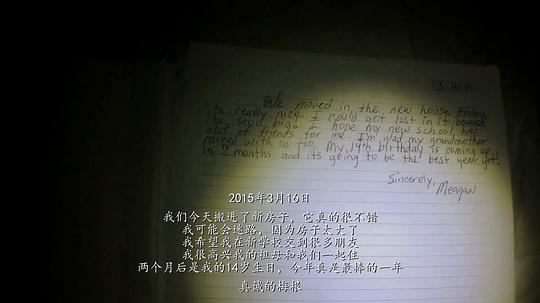 3.16.15
We moved in the new house today
its really nice. I could get lost in it because
its sooo big. I hope my new school has
alot of friends for me. I'm glad my grandmother
moved with us too. My 14th birthday is coming up
in 2 months and its going to be the best year yet!
Sincerely,
Meagan
2015年3月16日
我们今天搬进了新房子，它真的很不错
我可能会迷路，因为房子太大了
我希望我在新学校交到很多朋友
我很高兴我的祖母和我们一起住
两个月后是我的14岁生日，今年真是最棒的一年
真诚的梅根